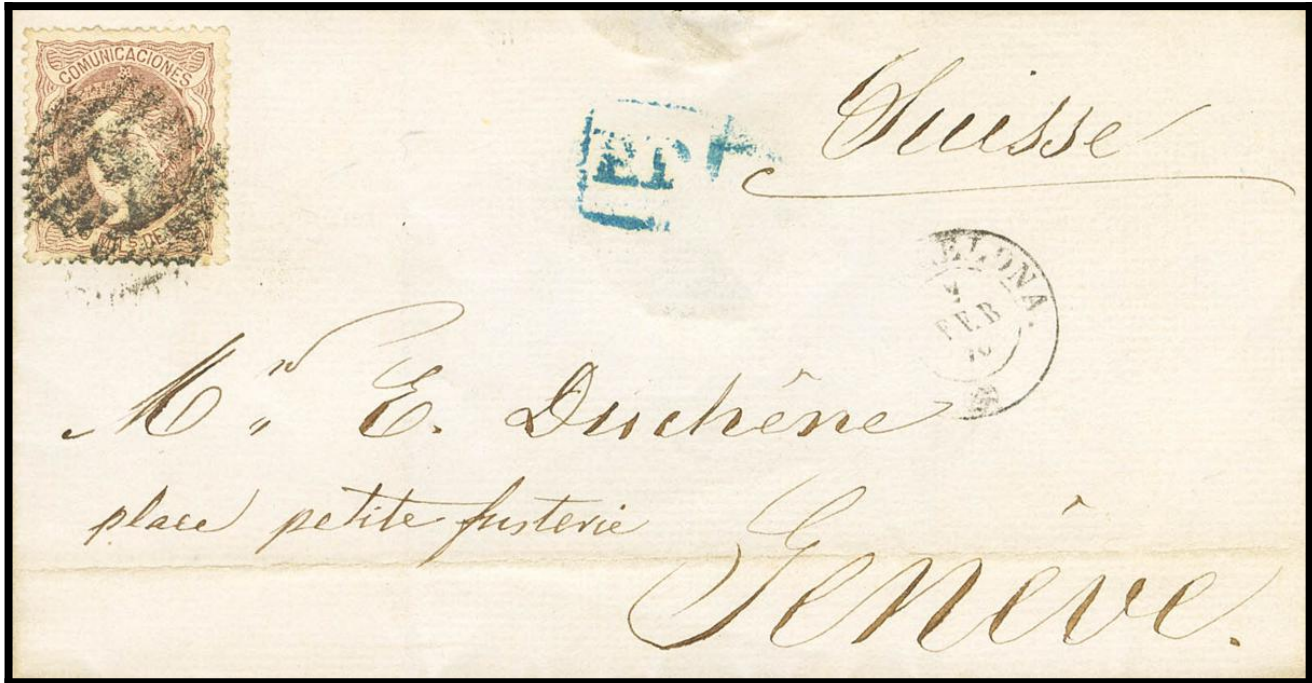 COMUNICACIONES
MILS DE
Suisse
FEB
Mr E. Duchêne
place petite fusterie
Genève.